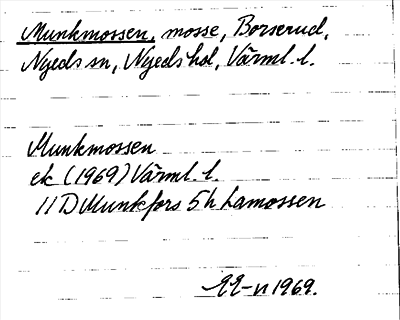 Munkmossen, mosse, Borserud,
Nyeds sn, Nyeds hd, Värml. l.
Munkmossen
ek (1969) Värml. l.
11 D Munkfors 5 h Lamossen
1969.